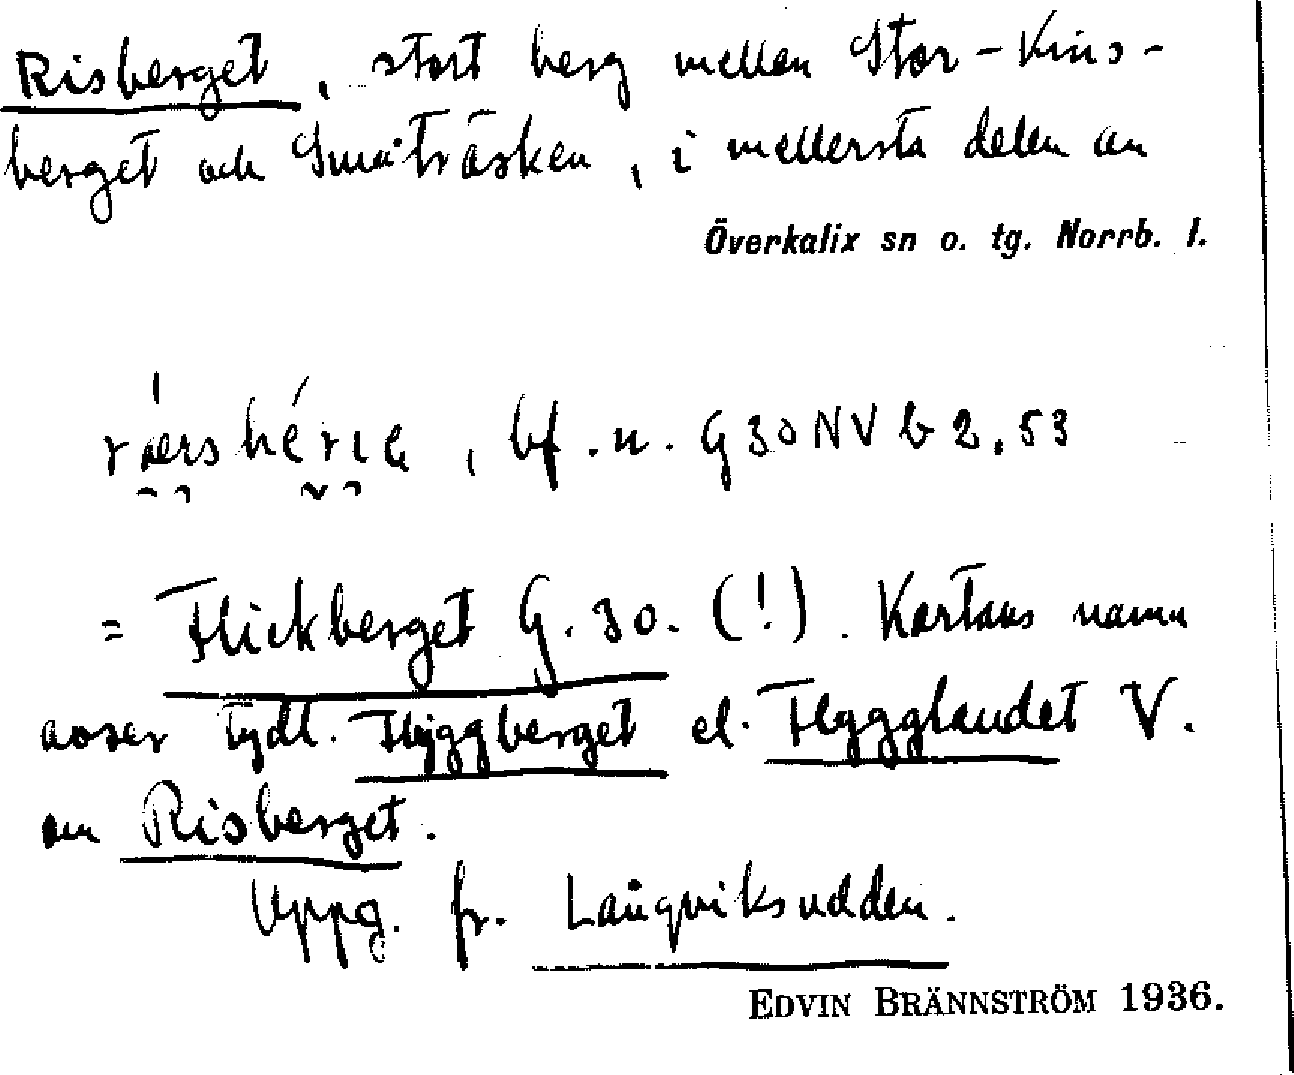 Risberget, stort berg mellan Stor-Kins-
berget och Småträsken, i mellersta delen av
Överkalix sn o. tg. Norrb. l.
bf. n. G 30 NV b 2, 53
= Flickberget G. 30. (!). Kartans namn
avser tydl. Flyggberget el. Flygglandet V.
om Risberget.
Uppg. fr. Långviksudden.
EDVIN BRÄNNSTRÖM 1936.